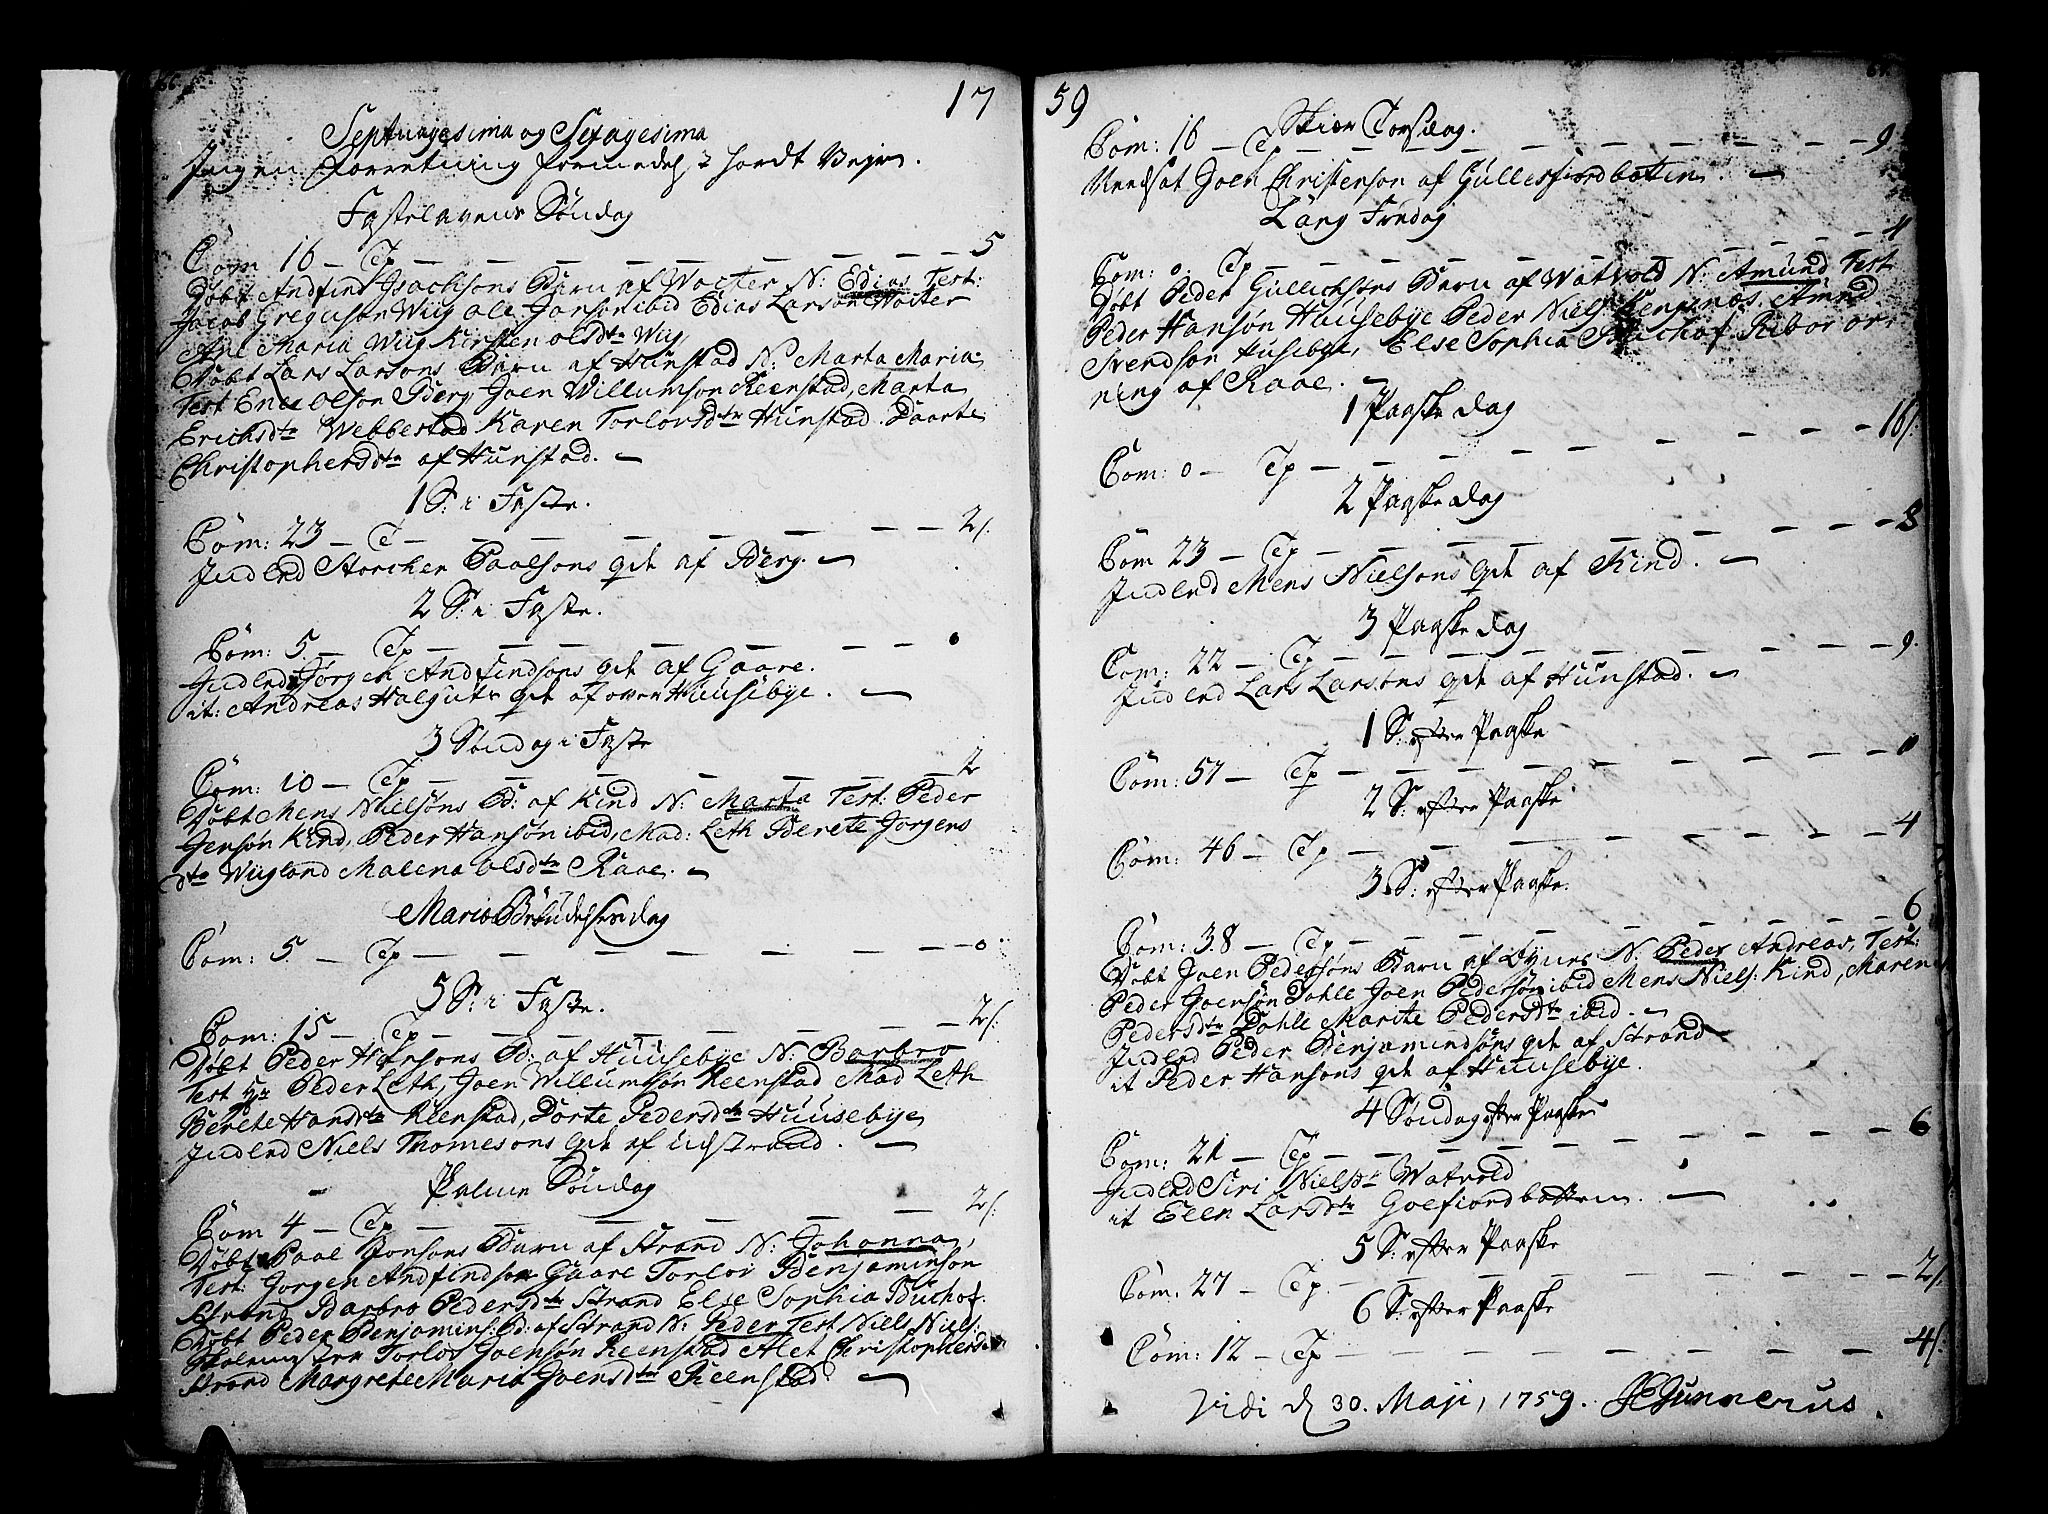 17
Septuagesima og Sexagesima
Ingen Forretning formedelst hardt Vejr.
Fastelavens Søndag
Com 16 — Tp — — — — — — 5
Døbt Andfind Isachsons Barn af Wolter N: Edias Test:
Jacob Greguson Wiig Ole Jonson ibid Edias Larson Wolter
Ane Maria Wiig Kirsten Olsdtr Wiig,
Døbt Lars Larsons Barn af Hunstad N: Marta Maria
Test Enee Olson Berg Joen Willumson Reenstad, Marta
Erichsdtr Webbestad Karen Torlovsdtr Hunstad Daarte
Christophersdtr af Hunstad. —
1 S: i Faste.
Com: 23 — T — — — — — — 2/:
Indled Storcker Paalsons qvt af Berg. —
2 S: i Faste.
Com: 5 — Tp — — — — — — 0
Indled Jørgen Andfindsons qvt af Gaare.
it: Andreas Halguts qvt af over Huusebye. —
3 Søndag i Faste
Com: 10 — Tp — — — — — — 2
Døbt Mens Nielsøns B: af Kind N: Marta Test: Peder
Jensøn Kind, Peder Hansøn ibid, Mad: Leth Berete Jorgens
dtr Wiigland Malena Olsdtr Raae. —
Mariæ Bebudelses dag
Com: 5 — Tp — — — — — — 0
5 S: i Faste.
Com: 15 — Tp — — — — — — 2/:
Døbt Peder Hansons B: af Huusebye N: Barbro
Test Hr Peder Leth, Joen Willumsøn Reenstad Mad Leth
Berete Hansdtr Reenstad, Dorte Pedersdtr Huusebye
Indled Niels Thomesons qvt af Udstrand. —
Palme Søndag
Com 4 — Tp — — — — — — 2/:
Døbt Paal Jonsons Barn af Strand N: Johanna,
Test: Jorgen Andfindson Gaare Torlov Benjaminson
Strand Barbro Pedersdtr Strand Else Sophia Buchof.
Døbt Peder Benjamins: B: af Strand N: Peder Test Niels Niels:
Torlov Joensøn Reenstad Alet Christophersd:
Strand Margrete Maria Joensdtr Reenstad —
59
Skiær Torsdag.
Com: 16 — Tp — — — — — — 9
Joen Christenson af Gullesfiordbotten —
Lang Fredag
Com: 0 Tp — — — — — — 4
Døbt Peder Gullichsøns Barn af Watvold N: Amund Test
Peder Hansøn Huusebye Peder Niels: Amund
Svendson Husebye, Else Sophia Buchof Ribor or-
ning af Raae. —
1 Paaske dag
Com: 0 — Tp — — — — — — 16/:
2 Paaske dag
Com 23 — Tp — — — — — — 8
Indled Mens Nielsons qvt af Kind. —
3 Paaske dag
Com: 22 — Tp — — — — — — 9.
Indled Lars Larsons qvt af Hunstad. —
1 S: efter Paaske
Com: 57 — Tp — — — — — — 0
2 S: efter Paaske
Com: 46 — Tp — — — — — — 4
3 S: efter Paaske.
Com: 38 — Tp — — — — — — 6
Døbt Joen Pedersøns Barn af Dynes N: Peder Andreas, Test:
Peder Joensøn Dahle Joen Pedersøn ibid Mens Niels: Kind, Maren
Pedersdtr Dahle Marite Pedersdtr ibid. —
Indled Peder Benjamindsøns qvt af Strand
it Peder Hansons qvt af Huusebye.
4 Søndag efter Paaske
Com: 21 — Tp — — — — — — 6
Indled Siri Nielsdtr Watvold
it Elen Larsdtr Goefiordbotten. —
5 S: efter Paaske
Com: 27 — Tp. — — — — — — 2/:
6 S: efter Paaske
Com: 12 — Tp — — — — — — 4/:
Vidi d 30. Maji, 1759. JEGunnerus.